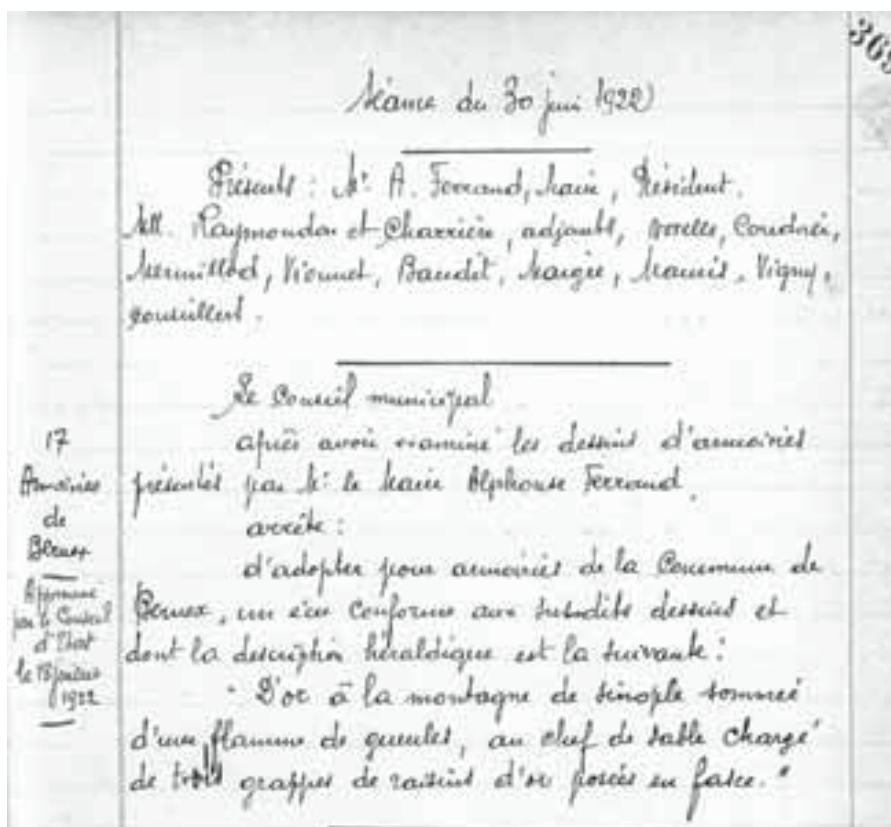 369
Séance du 30 juin 1922
Présents : Mr. A. Ferrand, Maire, Président.
MM. Raymondon et Charrière, adjoints, Coudrier,
Mermillod, Vionnet, Baudit, Vigny,
conseillers.
Le Conseil municipal
après avoir examiné les dessins d'armoiries
présentés par Mr. le Maire Alphonse Ferrand,
arrête :
d'adopter pour armoiries de la Commune de
Bernex, un écu conforme aux susdits dessins et
dont la description héraldique est la suivante :
"D'or à la montagne de sinople sommée
d'une flamme de gueules, au chef de sable chargé
de trois grappes de raisins d'or posées en fasce."
17
Armoiries
de
Bernex
par le Conseil
d'Etat
le juillet
1922